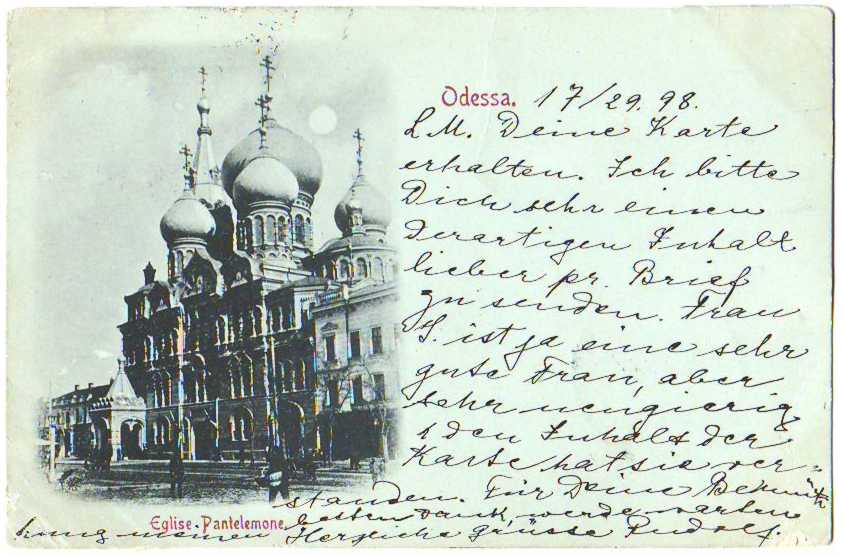 Odessa. 17/29. 98.
L.M. Deine Karte
erhalten. Ich bitte
Dich sehr einen
derartigen Inhalt
lieber pr. Brief
zu senden. Frau
S. ist ja eine sehr
gute Frau, aber
sehr neugierig
& den Inhalt der
Karte hat sie ver=
standen. Für Deine Bemüh
hung meinen besten Dank, werde warten
Herzliche Grüsse Rudolf.
Eglise-Pantelemone.